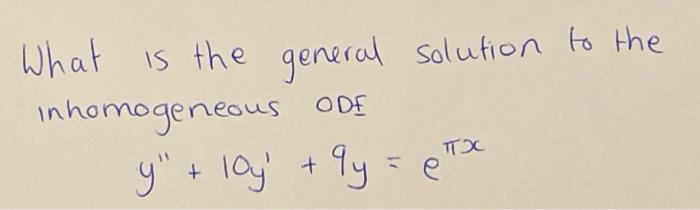 What is the general solution to the
inhomogeneous ODE
y'' + 10y' + 9y = e^{πx}